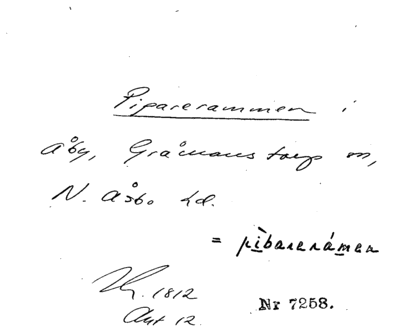 Piparerammen i
Åby, Gråmanstorp sn,
N. Åsbo hd.
= pìbarerámen
1812
Akt 12
Nr 7258.